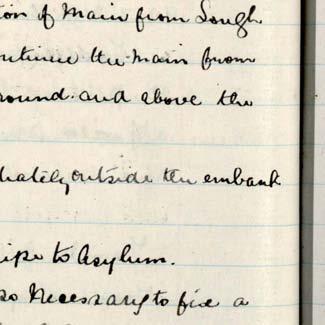 ion of Main from Lough
ontinue the Main from
round and above the
diately outside the embank
ipe to Asylum.
so Necessary to fix a